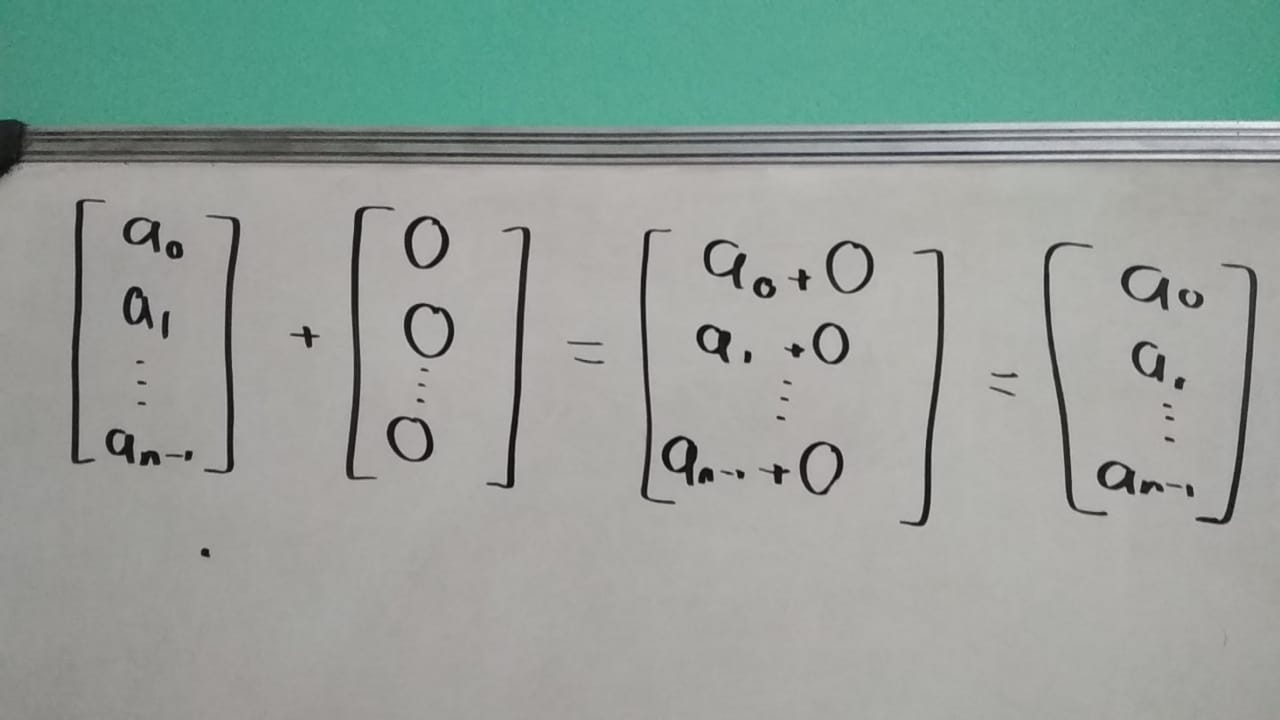 [a₀ a₁ ⋮ aₙ₋₁] + [0 0 ⋮ 0] = [a₀+0 a₁+0 ⋮ aₙ₋₁+0] = [a₀ a₁ ⋮ aₙ₋₁]